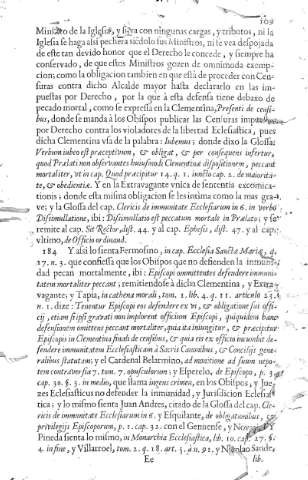 109
Ministro de la Iglesia, y sirva con ningunas cargas, y tributos, ni la
Iglesia se haga assi pechera siẽdolo sus Ministros, ni le vea despojada
de este tan devido honor que el Derecho le concede, y siempre ha
conservado, de que estos Ministros gozen de omnimoda exemp-
cion; como la obligacion tambien en que está de proceder con Cen-
suras contra dicho Alcalde mayor hasta declararlo en las im-
puestas por Derecho, por la que à esta defensa tiene debaxo de
pecado mortal, como se expressa en la Clementina, Presenti de censi-
bus, donde se manda à los Obispos publicar las Censuras impuestas
por Derecho contra los violadores de la libertad Eclesiastica, pues
dicha Clementina vsa de la palabra: Iubemus; donde dixo la Glossa:
Verbum iubeo est præceptivum, & obligat, & per consequens infertur,
quod Prælati non observantes huiusmodi Clementina dispositionem, peccant
mortaliter, vt in cap. Quod præcipitur 14. q. 1. iuncto cap. 2. de maiorita-
te, & obedientia. Y en la Extravagante vnica de sententia excomica-
tionis, donde esta misma obligacion se insinúa como la mas gra-
ve; y la Glossa del cap. Clericis de immunitate Ecclesiarum in 6. in verbo
Dissimulatione, ibi: Dissimulatio est peccatum mortale in Prælato; y se
remite al cap. Sit Rector, dist. 44. y al cap. Ephesis, dist. 47. y al cap.
vltimo, de Officio ordinand.
184 Y assi lo sienta Fermosino, in cap. Ecclesia Sanctæ Mariæ, q.
17. n. 3. que confiessa que los Obispos que no defienden la immuni-
dad pecan mortalmente, ibi: Episcopi ommittentes defendere immuni-
tatem mortaliter peccant; remitiendose à dicha Clementina, y Extra-
vagante; y Tapia, in cathena morali, tom. 1. lib. 4. q. 11. articulo 23.
n. 1. dize: Tenentur Episcopi eas defendere ex vi, & obligatione sui offi-
cij, etiam si ipsi gravati non implorent officium Episcopi, quiquidem hanc
defensionem omittens peccant mortaliter, quia ita iniungitur, & præcipitur
Episcopis in Clementina finali de censibus, & quia ex ex officio incumbit de-
fendere immunitatem Ecclesiasticam à Sacris Canonibus, & Concilijs gene-
ralibus statutam; y el Cardenal Belarmino, ad monitione ad suum nepo-
tem contraversia 7. tom. 7. opusculorum; y Esperelo, de Episcopo, p. 3.
cap. 30. §. 3. in medio, que llama ingens crimen, en los Obispos, y Jue-
zes Eclesiasticos no defender la inmunidad, y Jurisdicion Eclesias-
tica; y lo mismo sienta Juan Andres, citado de la Glossa del cap. Cle-
ricis de immunitate Ecclesiarum in 6. y Esquilante, de obligationibus, &
privilegijs Episcoporum, p. 1. cap. 32. con el Genuense, y
Pineda sienta lo mismo, in Monarchia Ecclesiastica, lib. 10. cap. 27. §.
4. in fine, y Villarroel, tom. 2. q. 18. art. 3. à n. 91. y Nicolao Sande,
Ee lib.